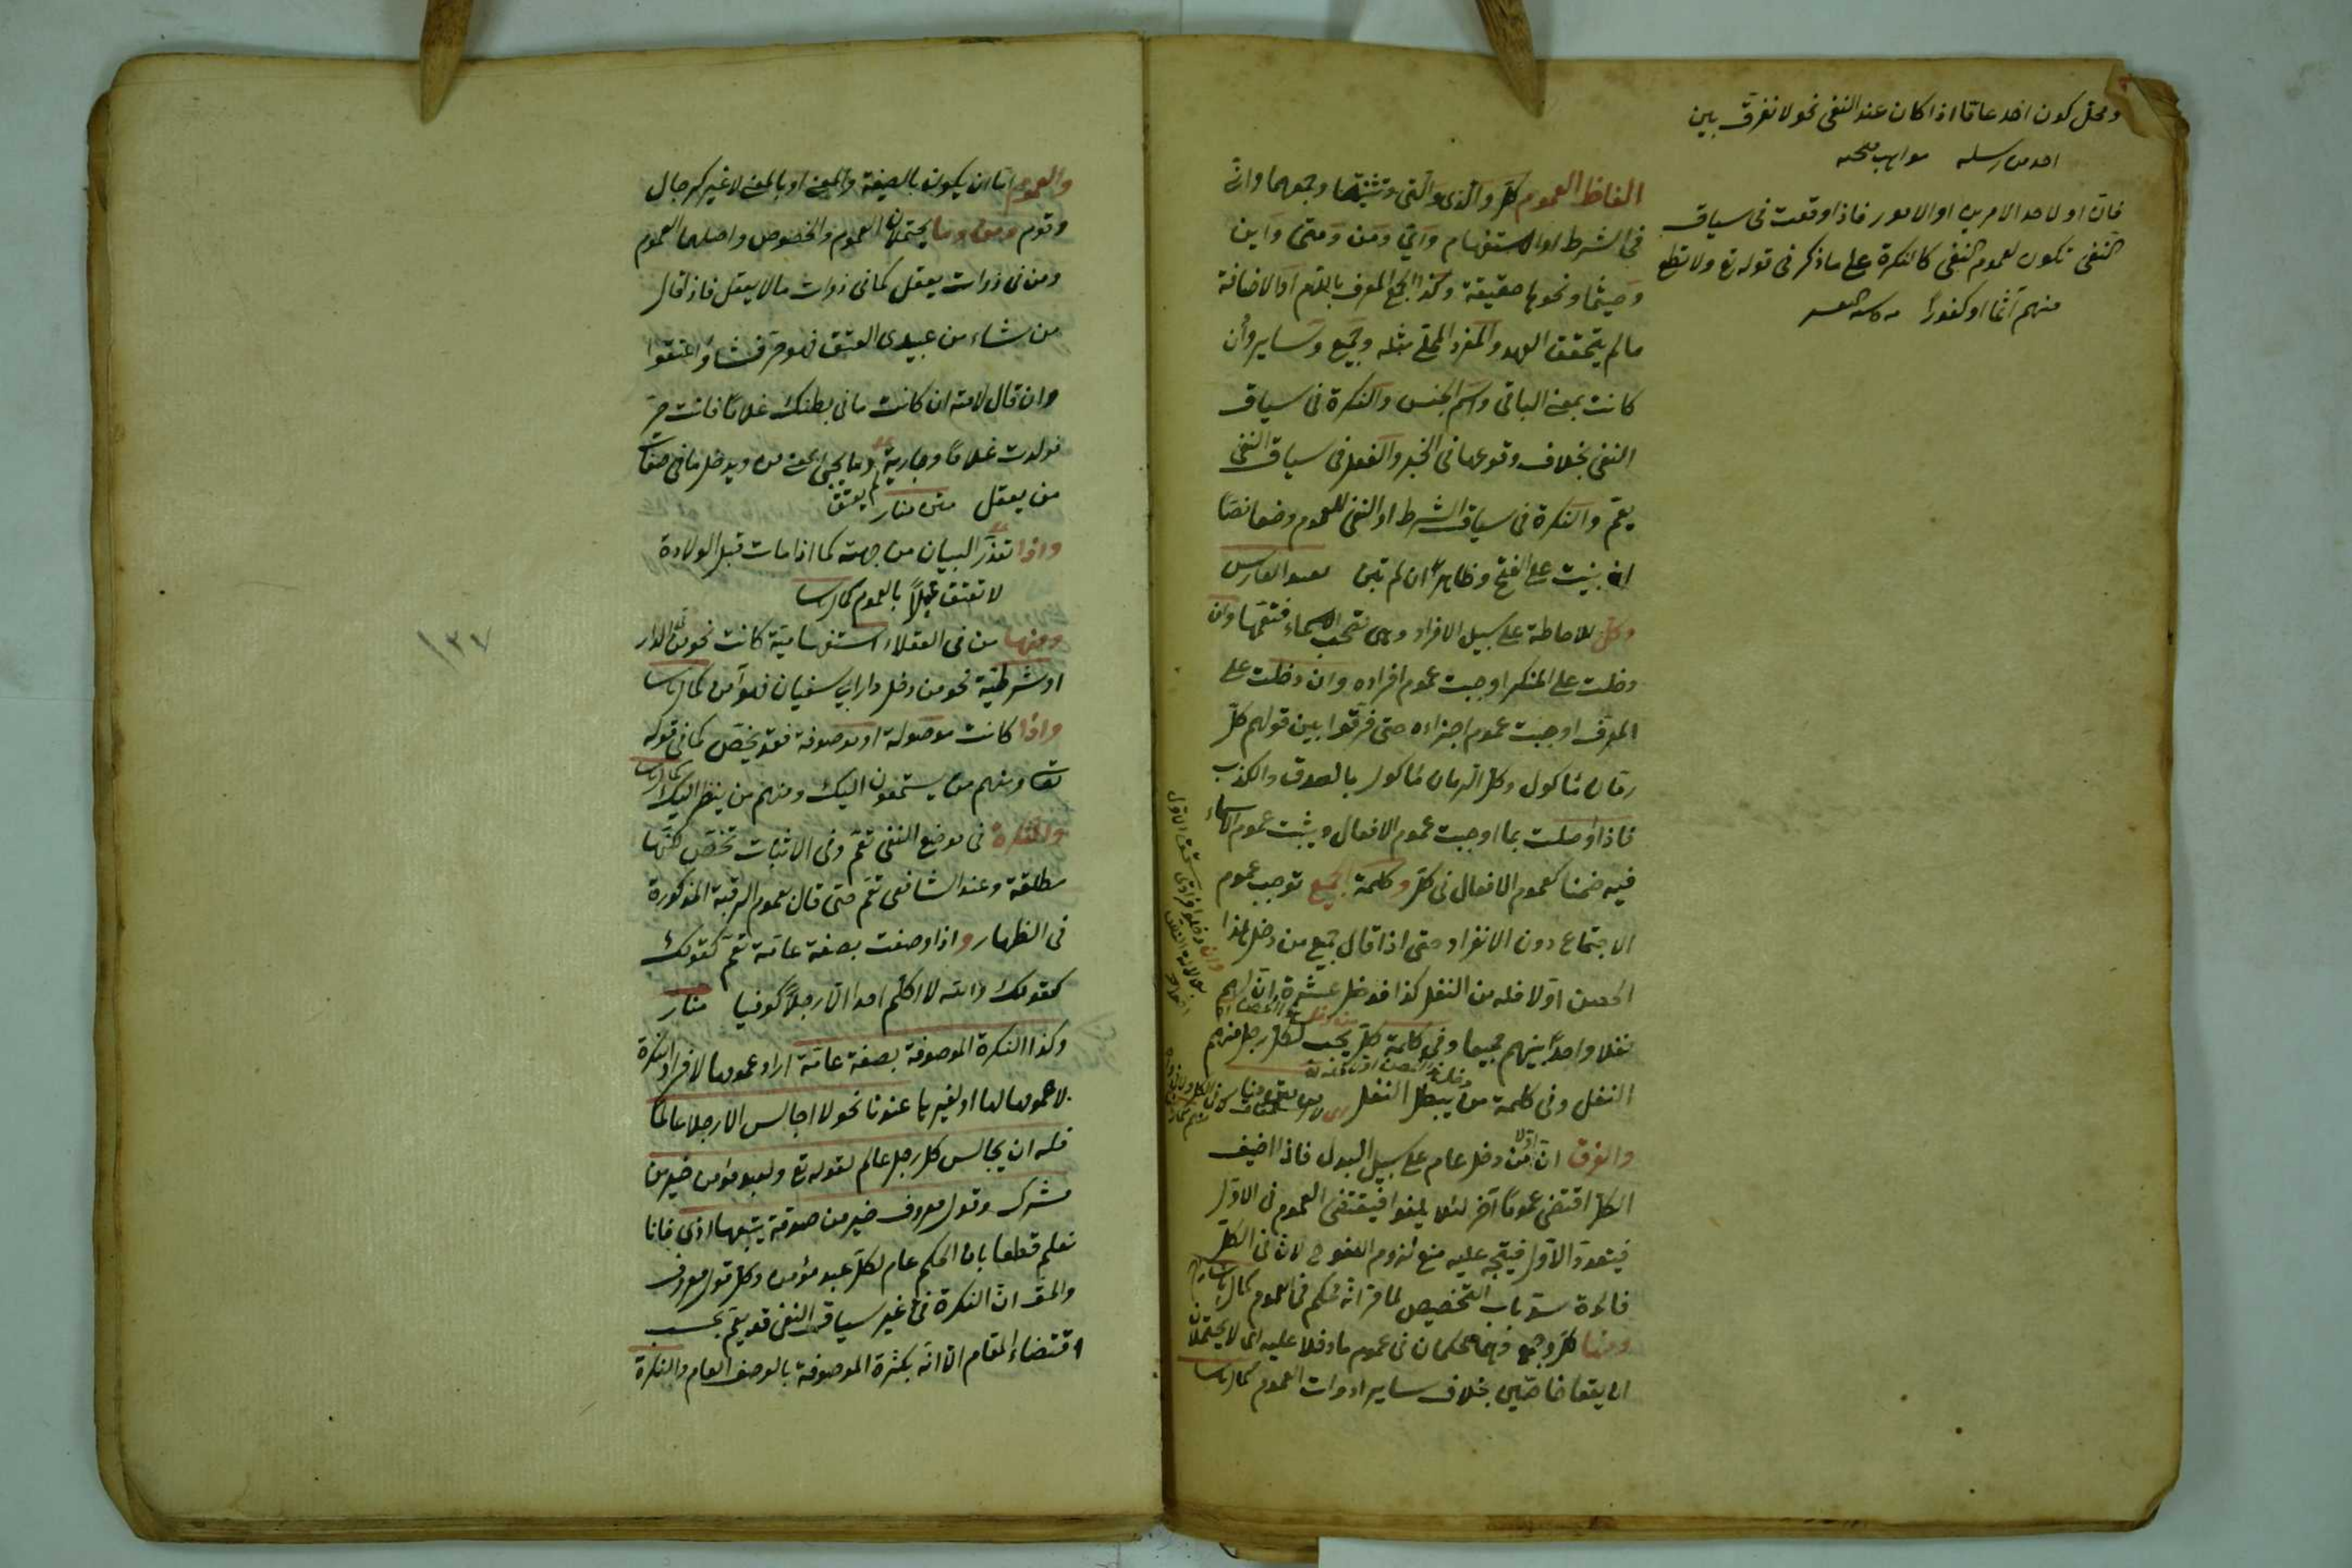 ومحل كون احد عاما اذا كان عند النفى نحو لا نفرق بين
احد من رسله
فان او لاحد الامرين او الامور فاذا وقعت فى سياق
النفى تكون لعموم النفى كالنكرة على ما ذكر فى قوله تع ولا تطع
منهم آثما او كفورا
الفاظ العموم كل والذى والتى وتثنيتهما وجمعهما واى
فى الشرط او الاستفهام وانى ومن ومتى واين
وحيثما ونحوها حقيقة وكذا الجمع المعرف باللام او الاضافة
ما لم يتحقق العهد والمفرد المحلى مثله وجميع وساير وان
كانت بمعنى الباقى واسم الجنس والنكرة فى سياق
النفى بخلاف وقوعها فى الخبر والفعل فى سياق النفى
يعم والنكرة فى سياق الشرط او النفى للعموم وضعا نصا
ان بنيت على الفتح وظاهرا ان لم تبن
وكل للاحاطة على سبيل الافراد وهى تصحب الاسماء فتعمها وان
دخلت على المنكر اوجبت عموم افراده وان دخلت على
المعرف اوجبت عموم اجزاءه حتى فرقوا بين قولهم كل
رمان مأكول وكل الرمان مأكول بالصدق والكذب
فاذا وصلت بما اوجبت عموم الافعال ويثبت عموم الاسماء
فيه ضمنا كعموم الافعال فى كل وكلمة الجميع توجب عموم
الاجتماع دون الانفراد حتى اذا قال جميع من دخل هذا
الحصن اولا فله من النفل كذا فدخل عشرة ان لهم
نفلا واحدا بينهم جميعا وفى كلمة كل يجب لكل رجل منهم
النفل وفى كلمة من يبطل النفل
والفرق ان من دخل اولا عام على سبيل البدل فاذا اضيف
الكل اقتضى عموما آخر لئلا يلغو افيقتضى العموم فى الاول
فيتعدد الاول فيتجه عليه منع لزوم اللغو ح لان فى الكل
فائدة سد باب التخصيص لما مر انه محكم فى العموم
ومنها كل وجميع فهما محكمان فى عموم ما دخلا عليه اى لا يحتملان
ان يقعا خاصين بخلاف ساير ادوات العموم
والعموم اما ان يكون بالصيغة والمعنى او بالمعنى لا غير كرجال
وقوم ومن وما يحتملان العموم والخصوص واصلهما العموم
ومن فى ذوات يعقل كما فى ذوات ما لا يعقل فاذا قال
من شاء من عبيدى العتق فهو حر فشاؤا عتقوا
وان قال لامته ان كانت ما فى بطنك غلاما فانت حر
فولدت غلاما وجارية لم يعتق وما يجئ بمعنى من ويدخل ما فى صفات
من يعقل متن منار
واذا تعذر البيان من جهته كما اذا مات قبل الولادة
لا تعتق عملا بالعموم
ومنها من فى العقلاء استفهامية كانت نحو من فى الدار
او شرطية نحو من دخل دار ابى سفيان فهو آمن
واذا كانت موصولة او موصوفة فقد يخص كما فى قوله
تعا ومنهم من يستمعون اليك ومنهم من ينظر اليك
والنكرة فى موضع النفى تعم وفى الاثبات تخص لكنها
مطلقة وعند الشافعى تعم حتى قال بعموم الرقبة المذكورة
فى الظهار واذا وصفت بصفة عامة تعم كقولك
كقولك والله لا اكلم احدا الا رجلا كوفيا منار
وكذا النكرة الموصوفة بصفة عامة اراد عمومها لافراد النكرة
لا عمومها لها او لغيرها عندنا نحو لا اجالس الا رجلا عالما
فله ان يجالس كل رجل عالم لقوله تع ولعبد مؤمن خير من
مشرك وقول معروف خير من صدقة يتبعها اذى فانا
نعلم قطعا بان الحكم عام لكل عبد مؤمن وكل قول معروف
والحق ان النكرة فى غير سياق النفى قد يعم بحسب
اقتضاء المقام الا انه يكثر فى الموصوفة بالوصف العام والنكرة
١٣٧